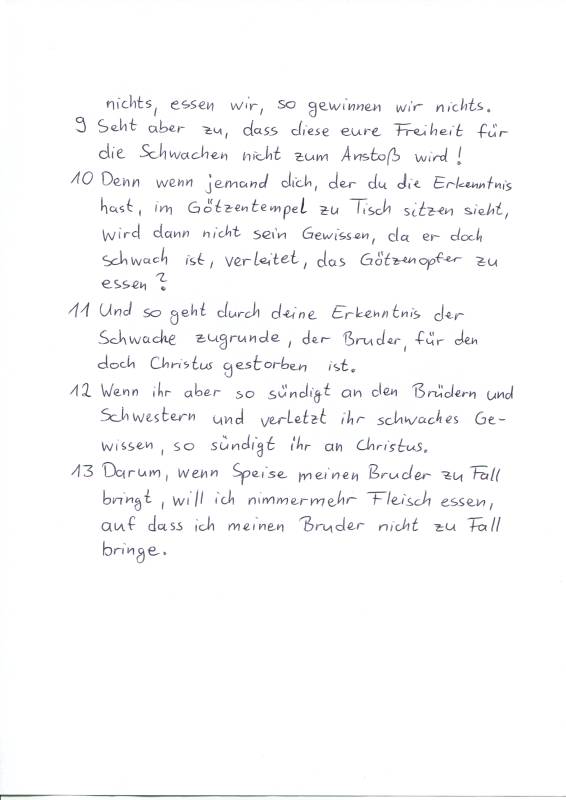 nichts, essen wir, so gewinnen wir nichts.
9 Seht aber zu, dass diese eure Freiheit für
die Schwachen nicht zum Anstoß wird!
10 Denn wenn jemand dich, der du die Erkenntnis
hast, im Götzentempel zu Tisch sitzen sieht,
wird dann nicht sein Gewissen, da er doch
schwach ist, verleitet, das Götzenopfer zu
essen?
11 Und so geht durch deine Erkenntnis der
Schwache zugrunde, der Bruder, für den
doch Christus gestorben ist.
12 Wenn ihr aber so sündigt an den Brüdern und
Schwestern und verletzt ihr schwaches Ge-
wissen, so sündigt ihr an Christus.
13 Darum, wenn Speise meinen Bruder zu Fall
bringt, will ich nimmermehr Fleisch essen,
auf dass ich meinen Bruder nicht zu Fall
bringe.